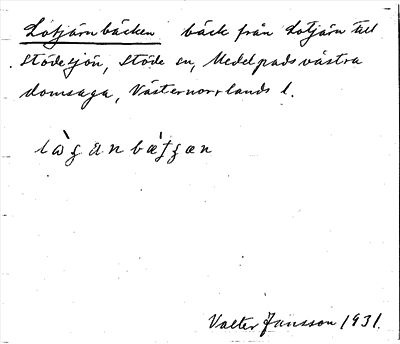 Lotjärnbäcken bäck från Lotjärn till
Stödesjön, Stöde sn, Medelpads västra
domsaga, Västernorrlands l.
Valter Jansson 1931.